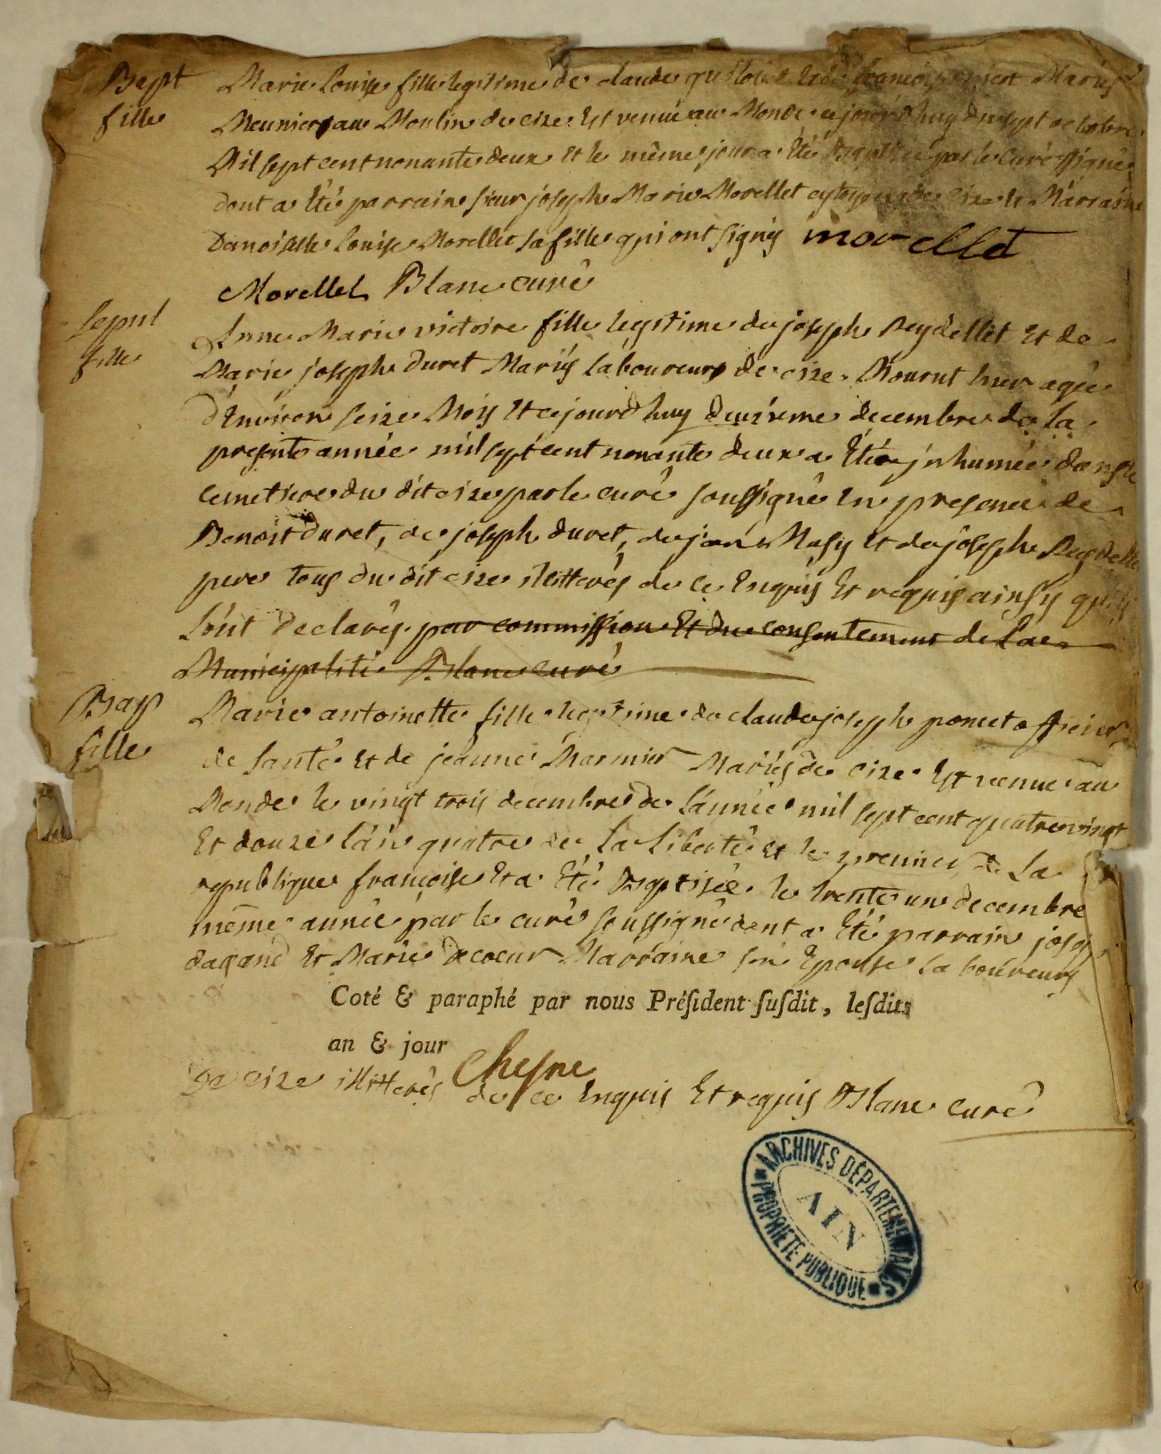 Bapt Marie Louise fille legitime de claude et de francoise Mariés
fille Meunier au Moulin de cize Est venue au Monde cejourd'huy dixsept octobre
Mil sept cent nonante deux et le même jour a Eté Baptisée par le curé ssigné
dont a Eté parrain sieur joseph Marie Morellet de cize et Marraine
Demoiselle Louise Morellet sa fille qui ont signés morellet
Morellet Blanc curé
sepul Anne Marie victoire fille legitime de joseph Reydellet Et de
fille Marie joseph duret Mariés laboureurs de cize. Mourut hier agée
d'Environ seize Mois Et cejourd'huy deuxieme decembre de la
presente année mil sept cent nonante deux a Eté jnhumée dans le
cemetiere du dit cize par le curé soussigné En presence de
Benoit duret, de joseph duret, de et de joseph Reydellet
pere tous du dit cize illitterés de ce Enquis Et requis ainsy qu'ils
sont declarés. par commission Et du consentement de La
Municipalité Blanc curé
Bap Marie antoinette fille legitime de claude joseph poncet officier
fille de santé Et de jeanne Marmier Mariés de cize Est venue au
Monde le vingt trois decembre de l'année mil sept cent quatre vingt
Et douze l'an quatre de La Liberté et le premier de La
republique francoise Et a Eté Baptisée le trente un decembre
même année par le curé soussigné dont a Eté parrain joseph
dagand Et Marie decoeur Marraine son Epouse laboureurs
Coté & paraphé par nous Préſident ſuſdit, leſdits
an & jour
Chesne
de cize illitterés de ce Enquis Et requis Blanc curé
ARCHIVES DÉPARTEMENTALES
AIN
PROPRIÉTÉ PUBLIQUE